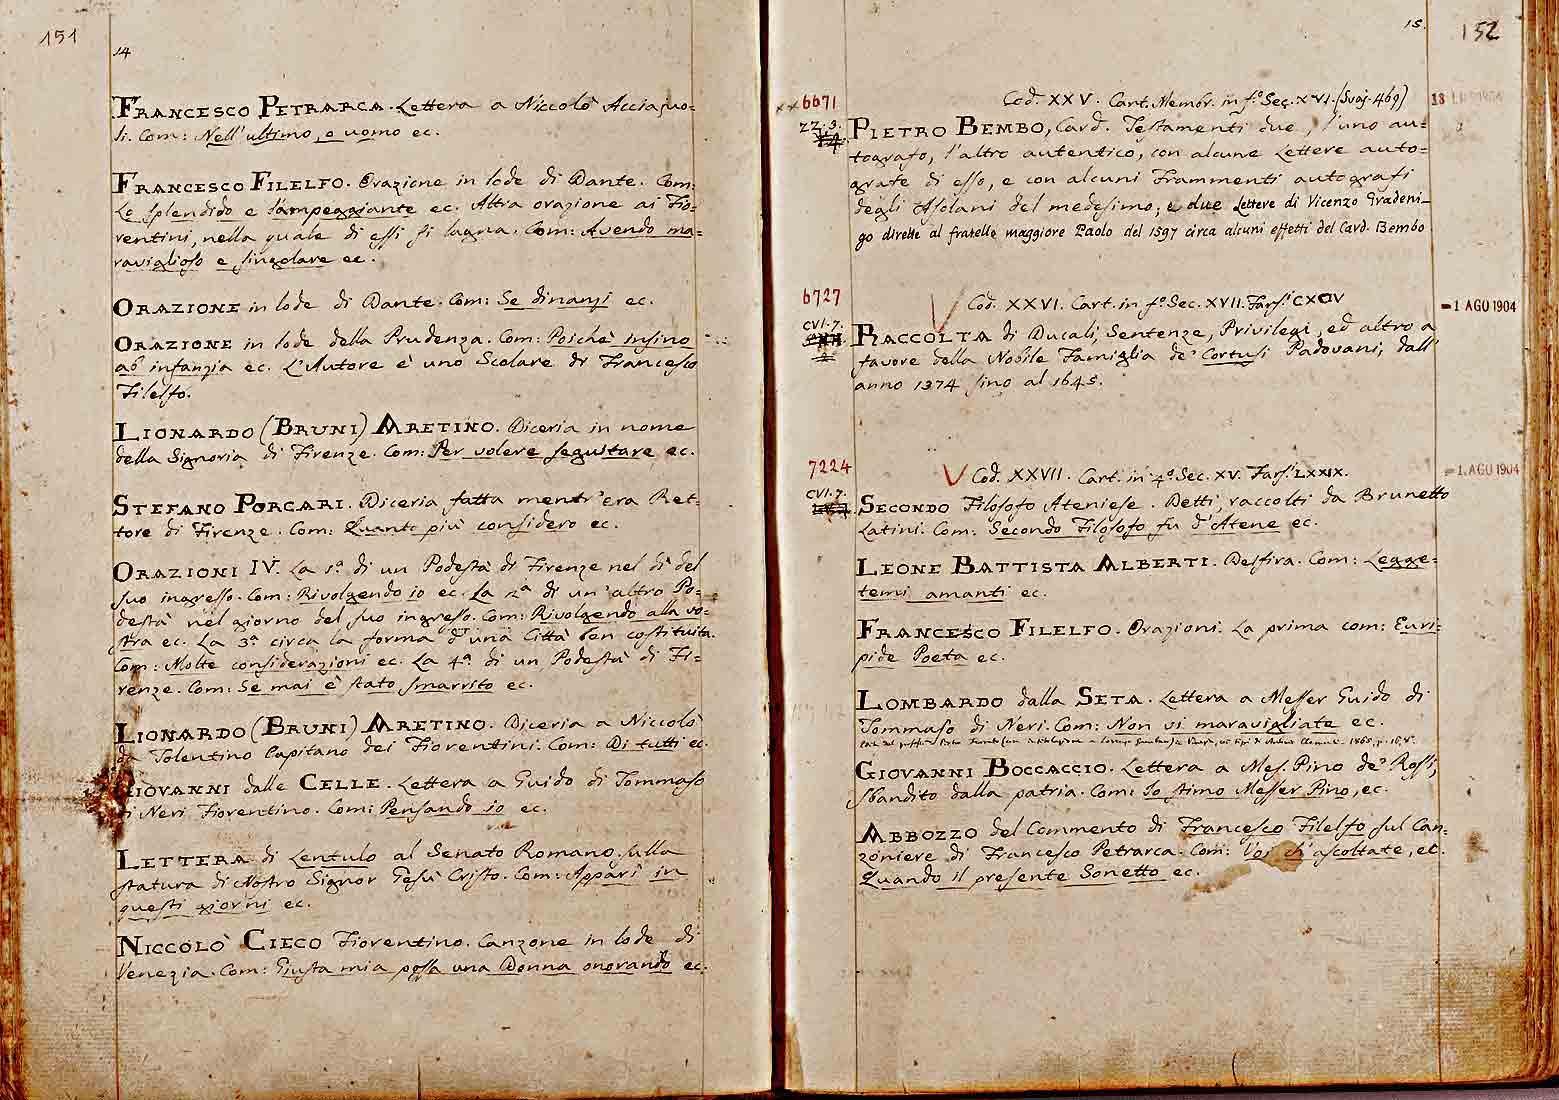 151
14
FRANCESCO PETRARCA. Lettera a Niccolò Acciajuo=
li. Com: Nell'ultimo, o uomo ec.
FRANCESCO FILELFO. Orazione in lode di Dante. Com:
Lo splendido e sampeggiante ec. Altra orazione ai Fio=
rentini, nella quale di essi si lagna. Com: Avendo ma=
raviglioso e singolare ec.
ORAZIONE in lode di Dante. Com: Se dinanzi ec.
ORAZIONE in lode della Prudenza. Com: Poichè insino
ab infanzia ec. L'Autore è uno Scolare di Francesco
Filelfo.
LIONARDO (BRUNI) ARETINO. Diceria in nome
della Signoria di Firenze. Com: Per volere seguitare ec.
STEFANO PORCARI. Diceria fatta mentr'era Ret=
tore di Firenze. Com: Quanto più considero ec.
ORAZIONI IV. La 1ª. di un Podestà di Firenze nel dì del
suo ingresso. Com: Rivolgendo io ec. La 2ª di un'altro Po=
destà nel giorno del suo ingresso. Com: Rivolgendo alla vo=
stra ec. La 3ª circa la forma d'una Città ben costituita.
Com: Molte considerazioni ec. La 4ª. di un Podestà di Fi=
renze. Com: Se mai è stato smarrito ec.
LIONARDO (BRUNI) ARETINO. Diceria a Niccolò
da Tolentino Capitano dei Fiorentini. Com: Di tutti ec.
GIOVANNI dalle CELLE. Lettera a Guido di Tommaso
di Neri Fiorentino. Com: Pensando io ec.
LETTERA di Lentulo al Senato Romano sulla
statura di Nostro Signor Gesù Cristo. Com: Apparì in
questi giorni ec.
NICCOLÒ CIECO Fiorentino. Canzone in lode di
Venezia. Com: Giusta mia possa una Donna onorando ec.
15.
152
6671
22.3.
Cod. XXV. Cart. Membr. in fº. Sec. XVI. (Svaj. 469)
18
PIETRO BEMBO, Card. Testamenti due, l'uno au=
tografo, l'altro autentico, con alcune Lettere auto=
grafe di esso, e con alcuni Frammenti autografi
degli Asolani del medesimo; e due Lettere di Vicenzo Gradeni_
go dirette al fratello maggiore Paolo del 1597 circa alcuni effetti del Card. Bembo
6727
CVI.7.
Cod. XXVI. Cart. in fº. Sec. XVII. Fars. CXCIV
-1 AGO 1904
RACCOLTA di Ducali, Sentenze, Privilegi, ed altro a
favore della Nobile Famiglia de' Cortusi Padovani, dall'
anno 1374 sino al 1645.
7224
CVI.7.
Cod. XXVII. Cart. in 4º. Sec. XV. Fars. LXXIX.
-1. AGO 1904
SECONDO Filosofo Ateniese. Detti, raccolti da Brunetto
Latini. Com: Secondo Filosofo fu d'Atene ec.
LEONE BATTISTA ALBERTI. Deifira. Com: Legge=
temi amanti ec.
FRANCESCO FILELFO. Orazioni. La prima com: Euri=
pide Poeta ec.
LOMBARDO dalla SETA. Lettera a Messer Guido di
Tommaso di Neri. Com: Non vi maravigliate ec.
1865, p. 16, 8º.
GIOVANNI BOCCACCIO. Lettera a Mes. Pino de' Rossi,
sbandito dalla patria. Com: Io stimo Messer Pino, ec.
ABBOZZO del Commento di Francesco Filelfo sul Can=
zoniere di Francesco Petrarca. Com: Voi ch'ascoltate, et.
Quando il presente Sonetto ec.